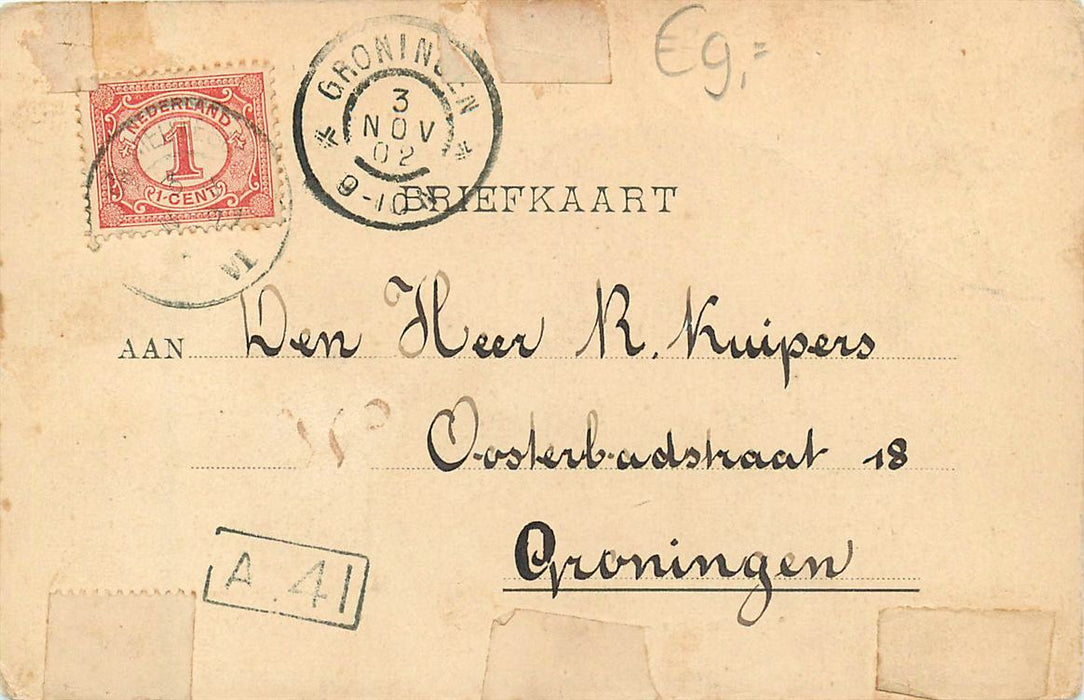 €9,=
NEDERLAND
1
1·CENT
GRONINGEN
3
NOV
02
9-10 V
BRIEFKAART
AAN Den Heer R. Kuipers
Oosterbadstraat 18
Groningen
A 41